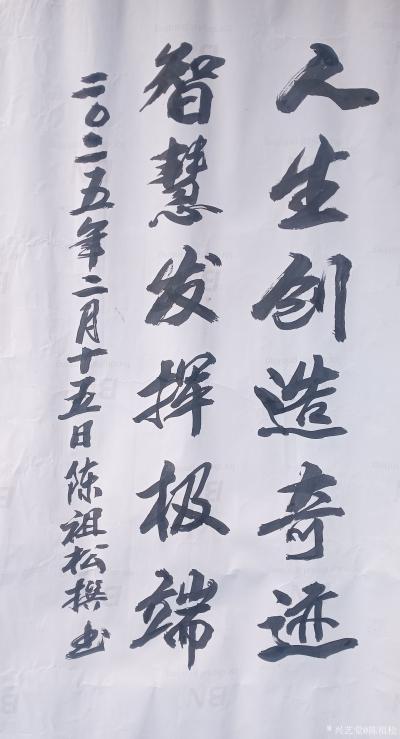 人生创造奇迹
智慧发挥极端
二〇二五年二月十五日陈祖松撰书
兴艺堂@陈祖松